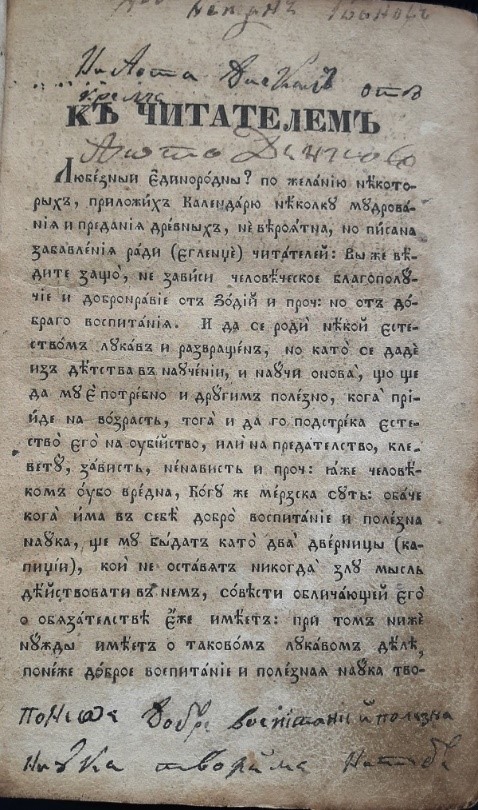 На Лота Даскалъ отъ
КЪ ЧИТАТЕЛЕМЪ
Любе́зный Є҆диноро́дны? по жела́нїю нѣ́кото-
рыхъ, приложи́хъ Календа́рю нѣ́колку мꙋдрова́-
нїѧ и преда́нїѧ дре́вныхъ, нѐ вѣроѧ́тна, но пи́сана
забавле́нїѧ ра́ди (єгленџѐ) чита́телей: Вы́ же вѣ́-
дите защо̀, не зави́си человѣ́ческое благополꙋ́-
чїе и добронра́вїе отъ Зѡ́дїй и проч: но отъ до́-
браго воспита́нїѧ. И да се родѝ нѣ́кой єсте-
ство́мъ лꙋка́въ и развраще́нъ, но като̀ се дадѐ
изъ дѣ́тства въ наꙋче́нїи, и наꙋчѝ онова̀, що ще
да мꙋ є҆ потре́бно и дрꙋги́мъ поле́зно, кога̀ прї-
и́де на во́зрасть, тога̀ и да го подстре́ка єсте-
ство̀ єго̀ на оуби́йство, илѝ на преда́телство, кле-
ветꙋ̀, за́висть, не́нависть и проч: ꙗ҆́же человѣ́-
комъ оу҆́бо вре́дна, Бо́гꙋ же ме́рзска сꙋ́ть: оба́че
кога̀ и҆́ма въ себѣ̀ добро̀ воспита́нїе и поле́зна
наꙋка, ще мꙋ бы́датъ като̀ два̀ две́рницы (ка-
пиџїи), коѝ не оста́вѧтъ никогда̀ злꙋ̀ мысль
дѣ́йствовати въ не́мъ, со́вѣсти облича́ющей єго̀
о обѧза́телствѣ є҆́же имѣ́етъ: при то́мъ нижѐ
нꙋ́жды имѣ́етъ о таково́мъ лꙋка́вомъ дѣ́лѣ,
поне́же до́брое воспита́нїе и поле́знаѧ наꙋка тво-
понеже добре воспитани й полезна
наꙋка творима